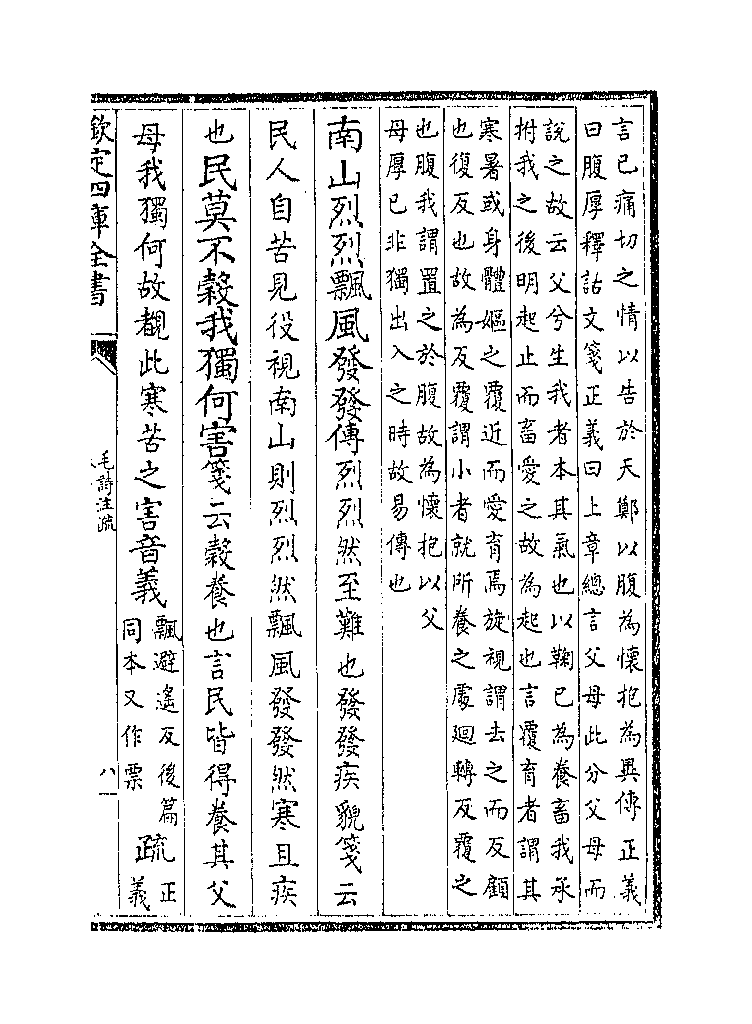 言已痛切之情以告於天鄭以腹為懷抱為異傳正義
曰腹厚釋詁文箋正義曰上章總言父母此分父母而
說之故云父兮生我者本其氣也以鞠已為養畜我承
拊我之後明起止而畜愛之故為起也言覆育者謂其
寒暑或身體嫗之覆近而愛育焉旋視謂去之而反顧
也復反也故為反覆謂小者就所養之處迴轉反覆之
也腹我謂置之於腹故為懷抱以父
母厚已非獨出入之時故易傳也
南山烈烈飄風發發傳烈烈然至難也發發疾貌箋云
民人自苦見役視南山則烈烈然飄風發發然寒且疾
也民莫不穀我獨何害箋云穀養也言民皆得養其父
母我獨何故覩此寒苦之害音義
飄避遙反後篇
同本又作票
疏
正
義
欽定四庫全書
毛詩注疏
八一